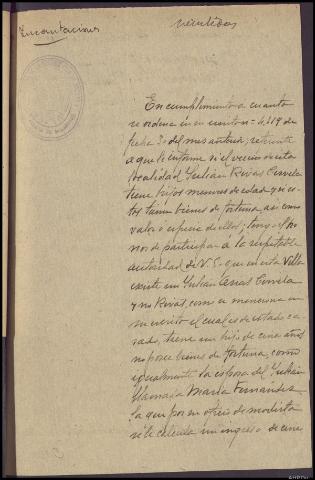 veintidos
Incautaciones
En cumplimiento a cuanto
se ordena en su escrito nº 4.419 de
fecha 30 del mes anterior, referente
a que le informe si el vecino de esta
localidad Julián Rivas Cervela
tiene hijos menores de edad y si es-
tos tienen bienes de fortuna, asi como
valor o especie de ellos; tengo el ho-
nor de participar á la respetable
autoridad de V.S. que en esta Villa
existe un Julian Cervela
y no Rivas, como se menciona en
su escrito el cual es de estado ca-
sado, tiene un hijo de cinco años
no posee bienes de fortuna, como
igualmente la esposa del Julián
llamada María Fernández
la que por su oficio de modista
se le calcula un ingreso de cinco